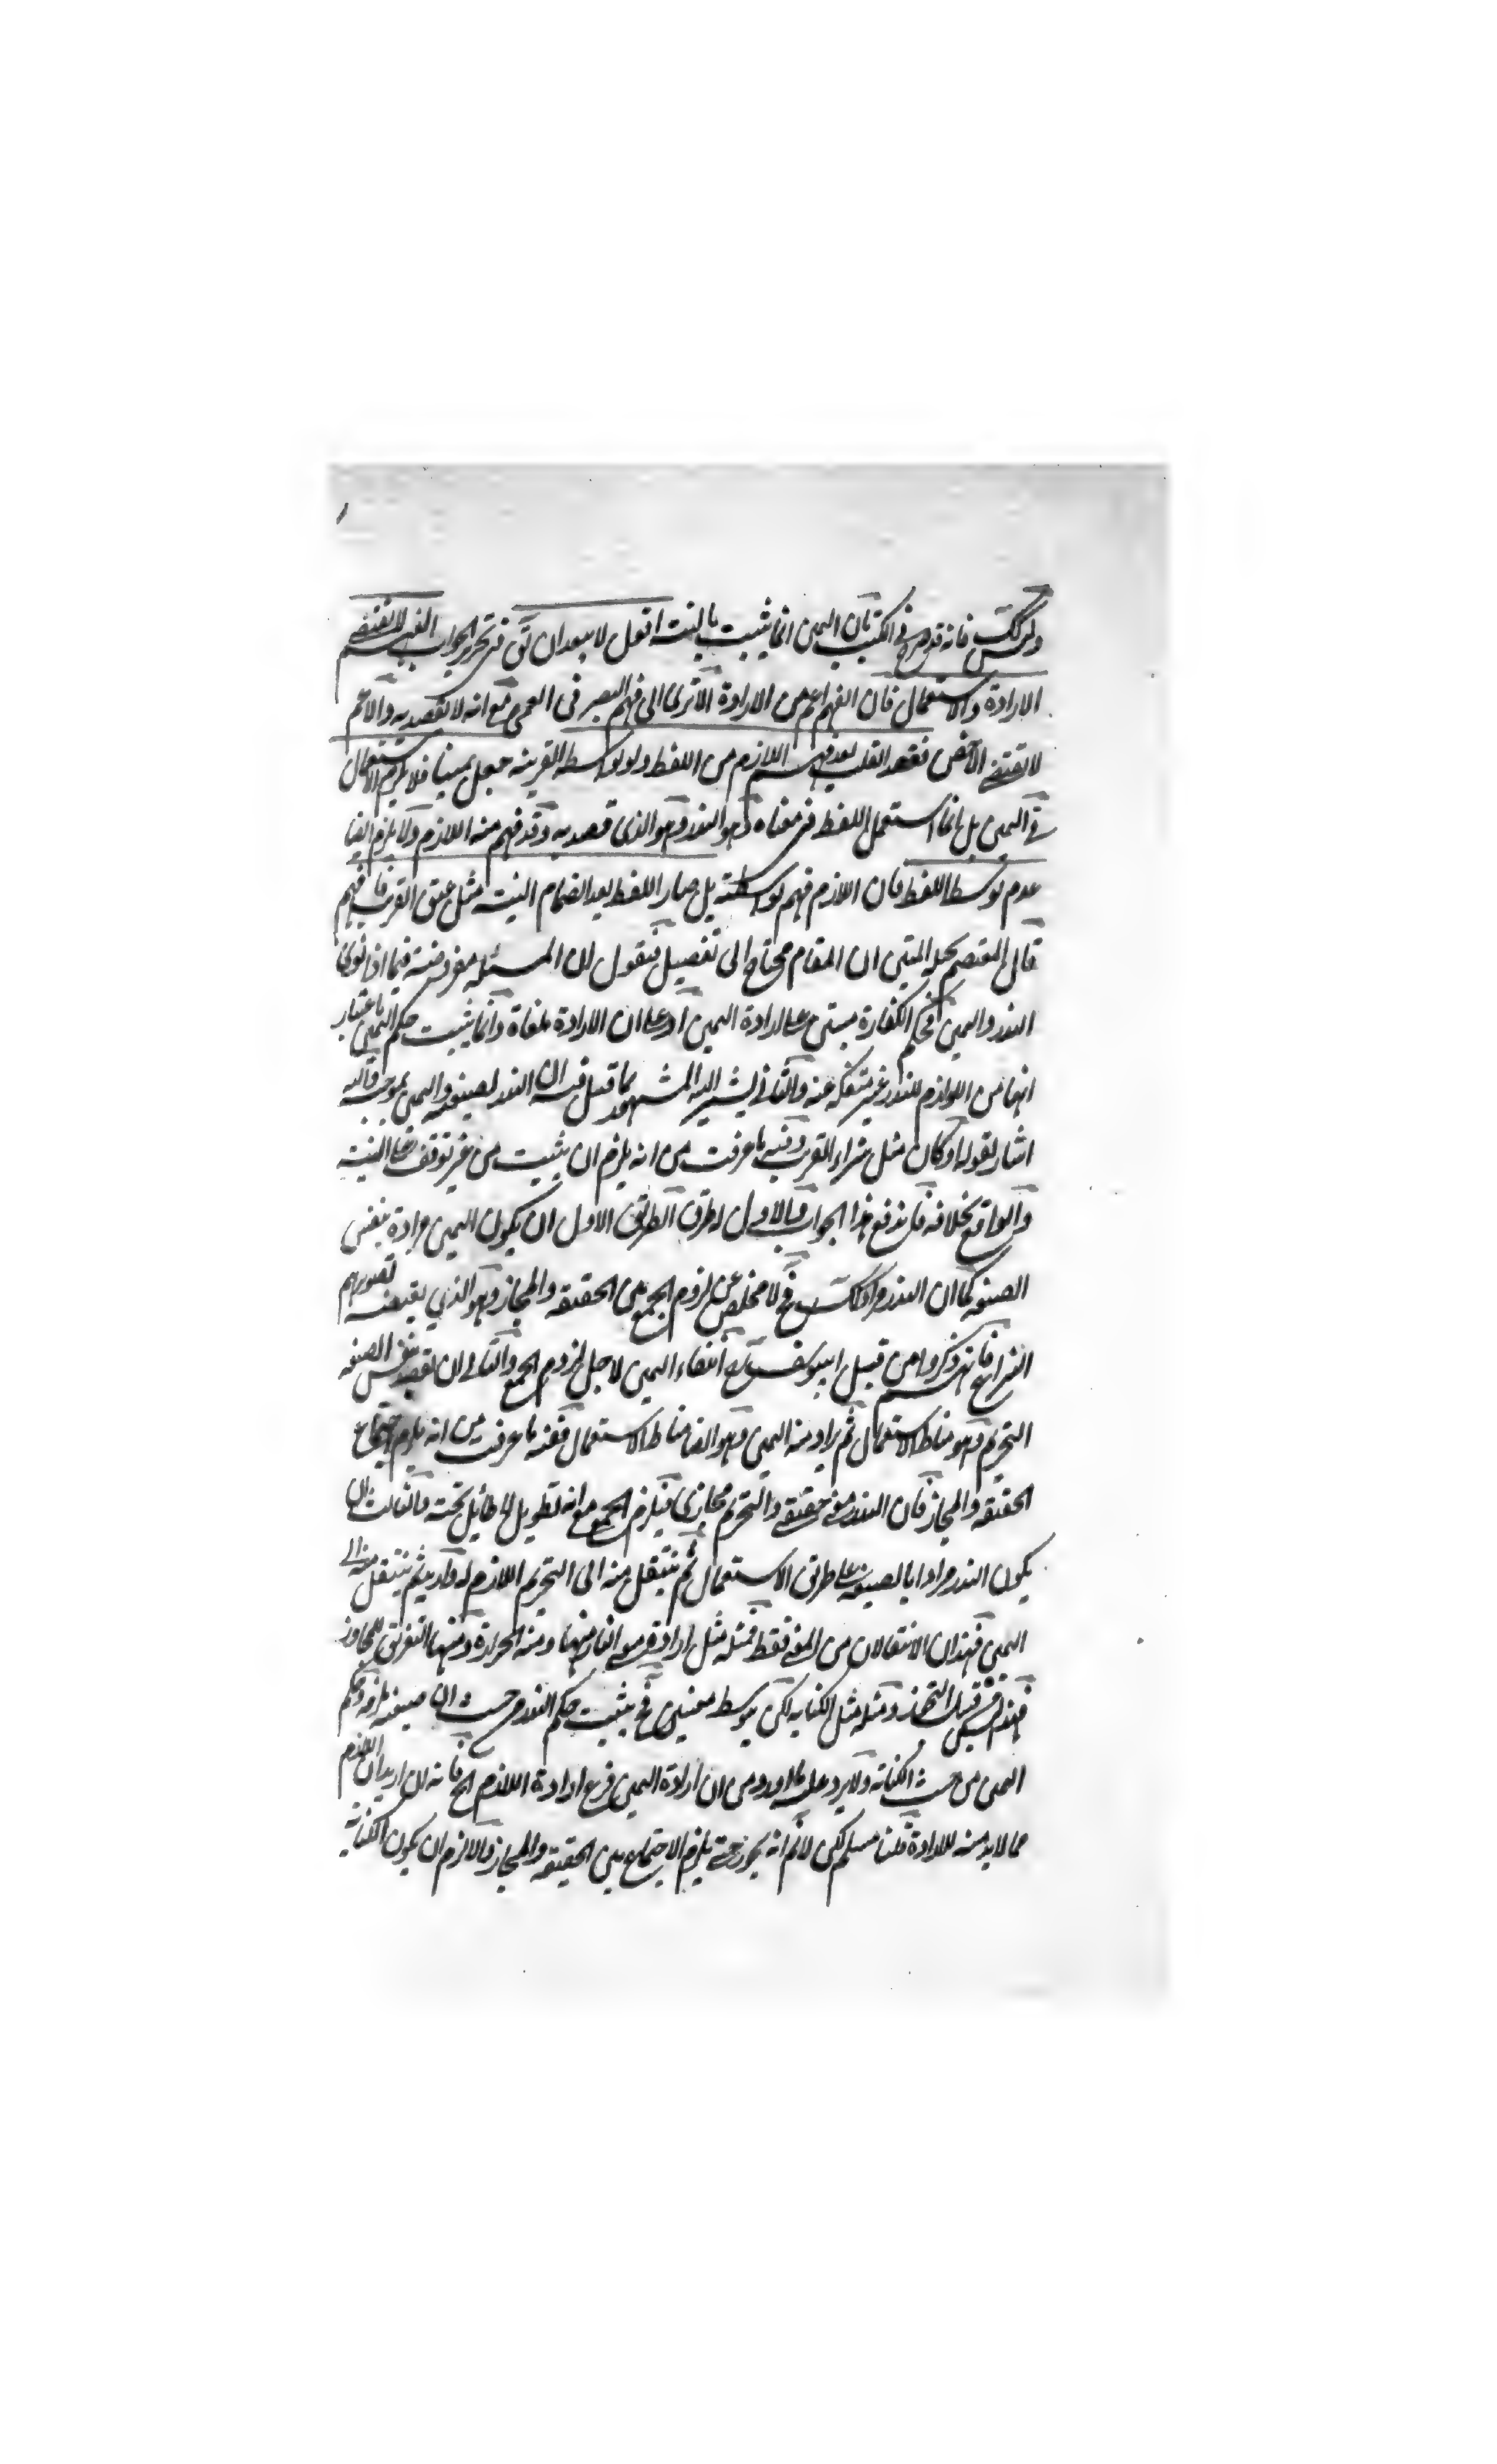 وليس كك فانه قد صرح في الكتب بان اليمين انما يثبت بالنية اقول لا يبعد ان يق في تحرير الجواب الفهم لا يقتضي
الارادة والاستعمال فان الفهم اعم من الارادة الا ترى الى فهم البصر في العمى مع انه لا يقصد به والاعم
لا يقتضي الاخص فقصد القلب بعد فهم اللازم من اللفظ ولو بواسطة القرينة جعل يمينا فلا يلزم الاستعمال
في اليمين بل انما استعمل اللفظ في معناه وهو النذر وهو الذي قصد به وقد فهم منه اللازم ولا يلزم ايضا
عدم توسط اللفظ فان اللازم فهم بواسطته بل صار اللفظ بعد انضمام النية مثل عتق القريب فافهم
قال المعتصم بحبله المتين ان المقام محتاج الى تفصيل فنقول ان المسئلة مفروضة فيما اذا نوى
النذر واليمين فحكم الكفارة مبتنى على ارادة اليمين او على ان الارادة ملغاة وانما يثبت حكم اليمين باعتبار
انها من اللوازم للنذر غير منفكة عنه والثاني يشير اليه المشهور بما قيل فيه ان النذر لصيغته واليمين بموجبه واليه
اشار بقوله او كان مثل شراء القريب وفيه ما عرفت من انه يلزم ان يثبت من غير توقف على النية
والواقع بخلافه فاندفع هذا الجواب والاول له طرق الطريق الاول ان يكون اليمين مرادة بنفس
الصيغة كما ان النذر مراد كك فح لا مخلص عن لزوم الجمع بين الحقيقة والمجاز وهو الذي يقتضيه تصويرهم
النزاع فانهم ذكروا من قبل ابيوسف رح انتفاء اليمين لاجل لزوم الجمع والثاني ان يقصد بنفس الصيغة
التحريم وهو مناط الاستعمال ثم يراد منه اليمين وهو ايضا مناط الاستعمال ففيه ما عرفت من انه يلزم اجتماع
الحقيقة والمجاز فان النذر معنى حقيقي والتحريم مجازي فيلزم الجمع مع انه تطويل لا طائل تحته والثالث ان
يكون النذر مرادا بالصيغة على طريق الاستعمال ثم ينتقل منه الى التحريم اللازم له واريد ثم ينتقل منه الى
اليمين فهذان الانتقالان من المعنى فقط فمثله مثل ارادة معنى النار منها ومنه الحرارة ومنها التفريق للمجاوز
فهذا من قبيل المجاز ومثله مثل الكناية لكن بتوسط معنيين فح يثبت حكم النذر من حيث ان صيغته ملزومة وحكم
اليمين من حيث الكناية ولا يرد عليه ما اورد من ان ارادة اليمين فرع ارادة اللازم الخ فانه ان اريد ان اللازم
مما لا بد منه للارادة قلنا مسلم لكن لا نم انه يجوز حتى يلزم الاجتماع بين الحقيقة والمجاز والا لزم ان يكون الكناية